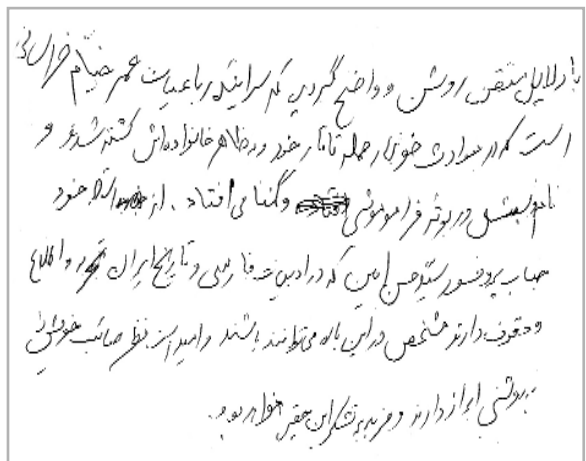 با دلایل متقن روشن و واضح گردید که سراینده رباعیات عمر خیام خراسانی
است که در حوادث خونبار حمله تاتار خود و خانواده‌اش کشته شدند و
در بوته فراموشی و گمنامی افتاد . از استاد خود
جناب پروفسور سید حسن امین که در ادبیات فارسی و تاریخ ایران تبحر و اطلاع
و وقوف دارند مشخص در این باره می‌توانند باشند و امید است نظر صائب خویش را
به روشنی ابراز دارند و مزید به تشکر این حقیر خواهد بود.